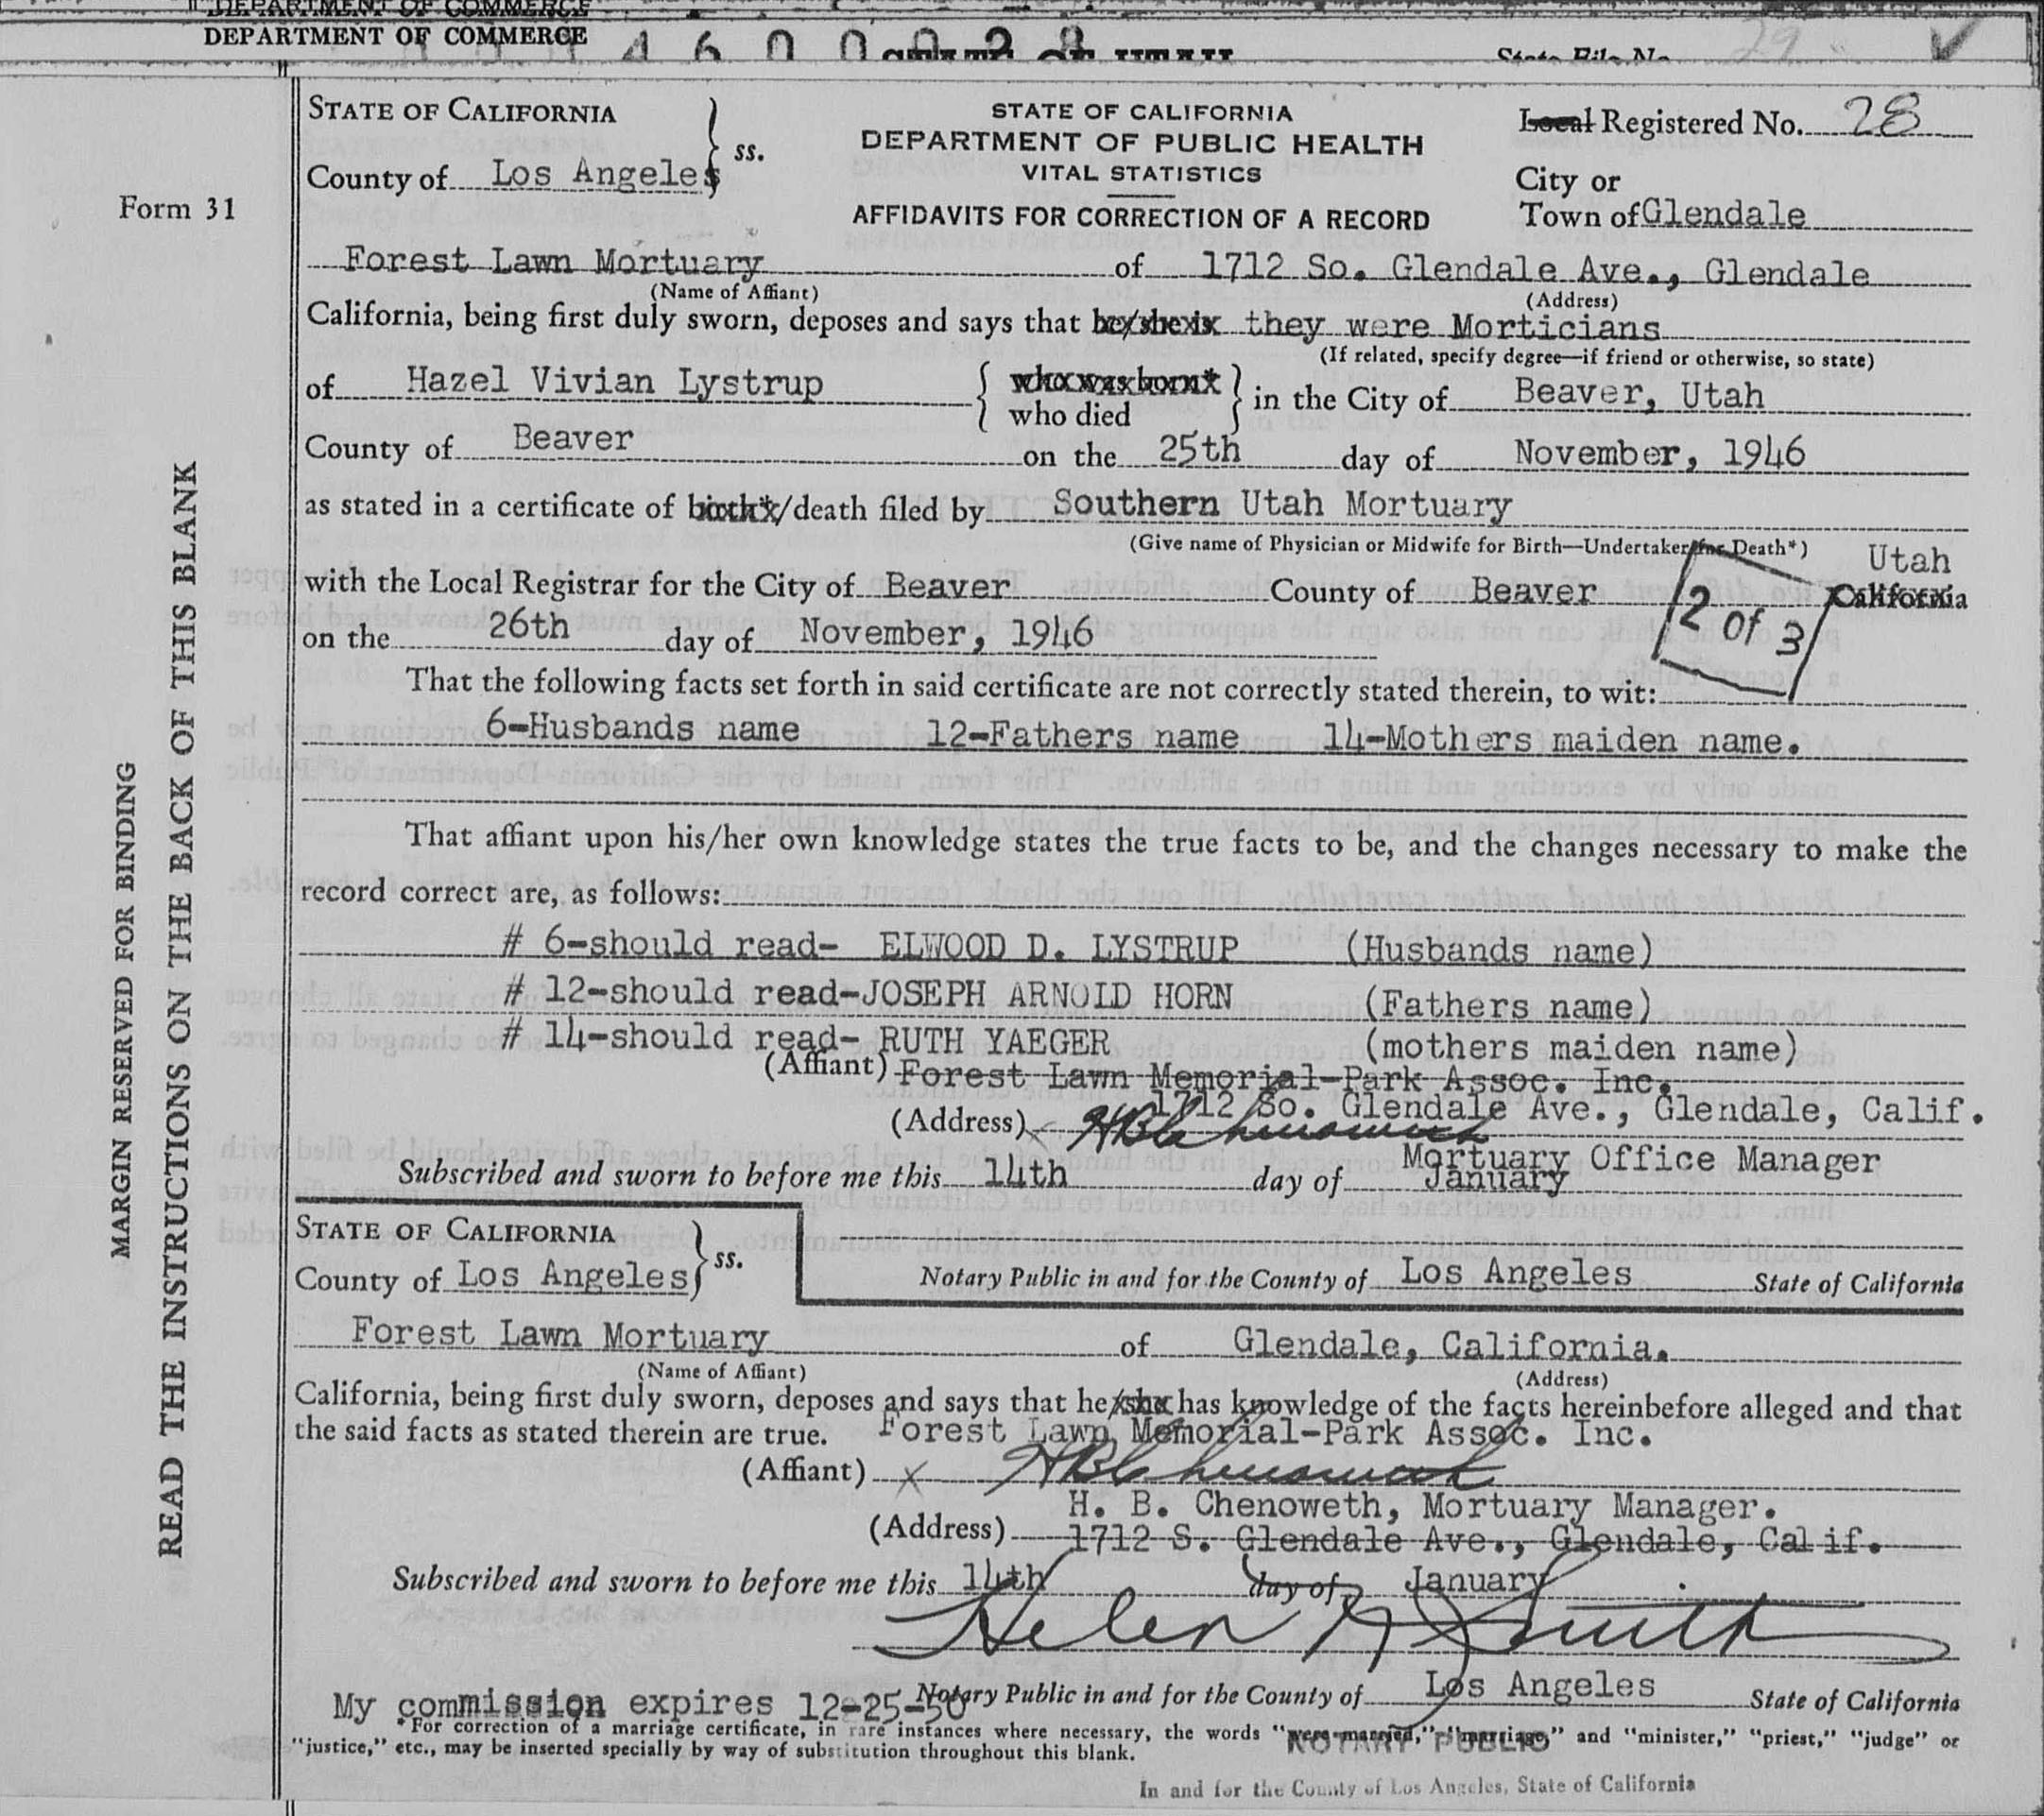 DEPARTMENT OF COMMERCE
DEPARTMENT OF COMMERCE
4 6 0 0 0 2 8 STATE OF UTAH State File No. 29
STATE OF CALIFORNIA
County of Los Angeles
ss.
STATE OF CALIFORNIA
DEPARTMENT OF PUBLIC HEALTH
VITAL STATISTICS
AFFIDAVITS FOR CORRECTION OF A RECORD
Local Registered No. 28
City or
Town of Glendale
Form 31
Forest Lawn Mortuary of 1712 So. Glendale Ave., Glendale
(Name of Affiant) (Address)
California, being first duly sworn, deposes and says that he/she is they were Morticians
(If related, specify degree—if friend or otherwise, so state)
of Hazel Vivian Lystrup { who was born* who died } in the City of Beaver, Utah
County of Beaver on the 25th day of November, 1946
as stated in a certificate of birth*/death filed by Southern Utah Mortuary
(Give name of Physician or Midwife for Birth—Undertaker for Death*)
with the Local Registrar for the City of Beaver County of Beaver Utah California
2 of 3
on the 26th day of November, 1946
That the following facts set forth in said certificate are not correctly stated therein, to wit:
6-Husbands name 12-Fathers name 14-Mothers maiden name.
That affiant upon his/her own knowledge states the true facts to be, and the changes necessary to make the
record correct are, as follows:
# 6-should read- ELWOOD D. LYSTRUP (Husbands name)
# 12-should read-JOSEPH ARNOLD HORN (Fathers name)
# 14-should read- RUTH YAEGER (mothers maiden name)
(Affiant) Forest Lawn Memorial-Park Assoc. Inc.
1712 So. Glendale Ave., Glendale, Calif.
(Address) x HB Chenoweth
Mortuary Office Manager
Subscribed and sworn to before me this 14th day of January
STATE OF CALIFORNIA
County of Los Angeles
ss.
Notary Public in and for the County of Los Angeles State of California
Forest Lawn Mortuary of Glendale, California.
(Name of Affiant) (Address)
California, being first duly sworn, deposes and says that he/she has knowledge of the facts hereinbefore alleged and that
the said facts as stated therein are true. Forest Lawn Memorial-Park Assoc. Inc.
(Affiant) x HB Chenoweth
H. B. Chenoweth, Mortuary Manager.
(Address) 1712 S. Glendale Ave., Glendale, Calif.
Subscribed and sworn to before me this 14th day of January
Helen Smith
My commission expires 12-25-50 Notary Public in and for the County of Los Angeles State of California
*For correction of a marriage certificate, in rare instances where necessary, the words "were married," "marriage," and "minister," "priest," "judge" or
"justice," etc., may be inserted specially by way of substitution throughout this blank.
NOTARY PUBLIC
In and for the County of Los Angeles, State of California
MARGIN RESERVED FOR BINDING
READ THE INSTRUCTIONS ON THE BACK OF THIS BLANK